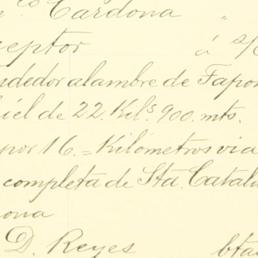 co Cardona "
ceptor á s/
ndedor alambre de Tapon
iel de 22. Kils. 900. mts.
por 16. = Kilómetros via
completa de Sta. Catal
ona
D. Reyes